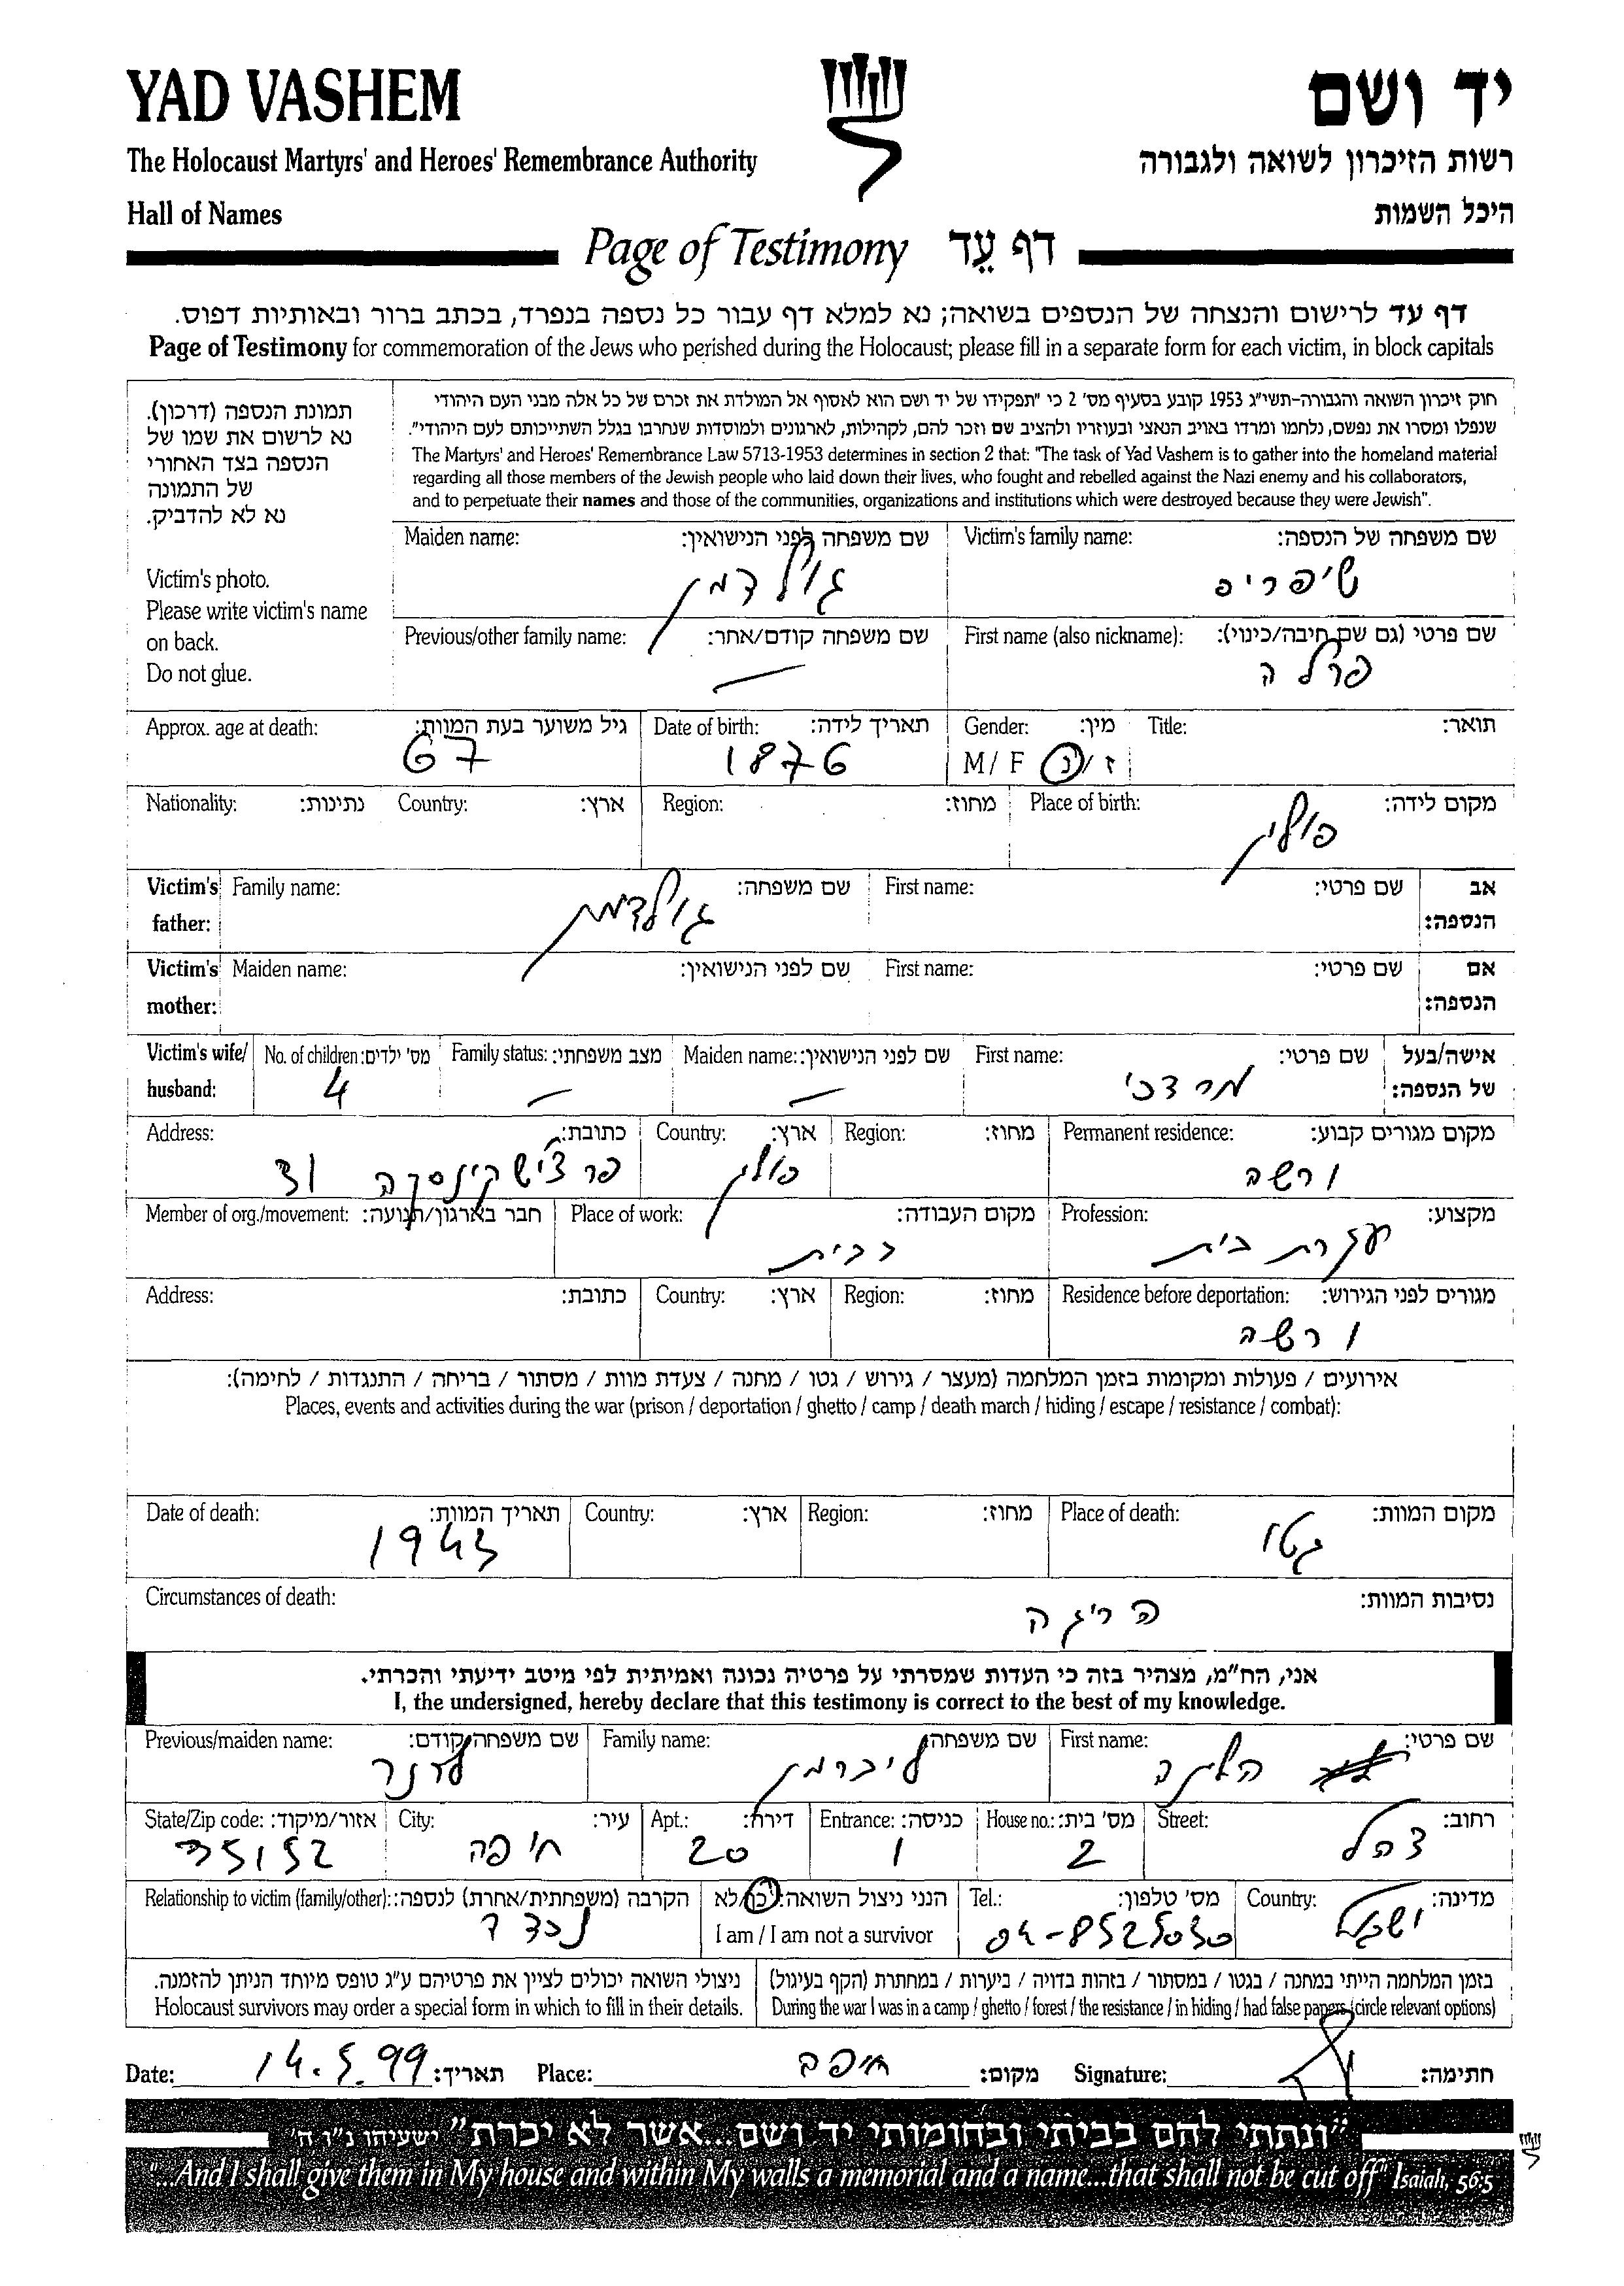 YAD VASHEM
יד ושם
The Holocaust Martyrs' and Heroes' Remembrance Authority
רשות הזיכרון לשואה ולגבורה
Hall of Names
היכל השמות
Page of Testimony דף עֵד
דף עד לרישום והנצחה של הנספים בשואה; נא למלא דף עבור כל נספה בנפרד, בכתב ברור ובאותיות דפוס.
Page of Testimony for commemoration of the Jews who perished during the Holocaust; please fill in a separate form for each victim, in block capitals
תמונת הנספה (דרכון).
נא לרשום את שמו של
הנספה בצד האחורי
של התמונה
נא לא להדביק.
Victim's photo.
Please write victim's name
on back.
Do not glue.
חוק זיכרון השואה והגבורה-תשי"ג 1953 קובע בסעיף מס' 2 כי "תפקידו של יד ושם הוא לאסוף אל המולדת את זכרם של כל אלה מבני העם היהודי
שנפלו ומסרו את נפשם, נלחמו ומרדו באויב הנאצי ובעוזריו ולהציב שם וזכר להם, לקהילות, לארגונים ולמוסדות שנחרבו בגלל השתייכותם לעם היהודי".
The Martyrs' and Heroes' Remembrance Law 5713-1953 determines in section 2 that: "The task of Yad Vashem is to gather into the homeland material
regarding all those members of the Jewish people who laid down their lives, who fought and rebelled against the Nazi enemy and his collaborators,
and to perpetuate their names and those of the communities, organizations and institutions which were destroyed because they were Jewish".
Victim's family name: שם משפחה של הנספה:
שיפריס
Maiden name: שם משפחה לפני הנישואין:
גולדמן
First name (also nickname): שם פרטי (גם שם חיבה/כינוי):
פרלה
Previous/other family name: שם משפחה קודם/אחר:
—
Title: תואר:
Gender: מין:
M / F ז / נ
Date of birth: תאריך לידה:
1876
Approx. age at death: גיל משוער בעת המוות:
67
Place of birth: מקום לידה:
פולין
Region: מחוז:
Country: ארץ:
Nationality: נתינות:
Victim's father: אב הנספה:
First name: שם פרטי:
Family name: שם משפחה:
גולדמן
Victim's mother: אם הנספה:
First name: שם פרטי:
Maiden name: שם לפני הנישואין:
Victim's wife/ husband: אישה/בעל של הנספה:
First name: שם פרטי:
מרדכי
Maiden name: שם לפני הנישואין:
—
Family status: מצב משפחתי:
—
No. of children: מס' ילדים:
4
Permanent residence: מקום מגורים קבוע:
ורשה
Region: מחוז:
Country: ארץ:
פולין
Address: כתובת:
31
Profession: מקצוע:
עקרת בית
Place of work: מקום העבודה:
בבית
Member of org./movement: חבר בארגון/תנועה:
Residence before deportation: מגורים לפני הגירוש:
ורשה
Region: מחוז:
Country: ארץ:
Address: כתובת:
אירועים / פעולות ומקומות בזמן המלחמה (מעצר / גירוש / גטו / מחנה / צעדת מוות / מסתור / בריחה / התנגדות / לחימה):
Places, events and activities during the war (prison / deportation / ghetto / camp / death march / hiding / escape / resistance / combat):
Place of death: מקום המוות:
גטו
Region: מחוז:
Country: ארץ:
Date of death: תאריך המוות:
1943
Circumstances of death: נסיבות המוות:
הריגה
אני, הח"מ, מצהיר בזה כי העדות שמסרתי על פרטיה נכונה ואמיתית לפי מיטב ידיעתי והכרתי.
I, the undersigned, hereby declare that this testimony is correct to the best of my knowledge.
First name: שם פרטי:
הלינה
Family name: שם משפחה:
ליברמן
Previous/maiden name: שם משפחה קודם:
לזנר
Street: רחוב:
צהל
House no.: מס' בית:
2
Entrance: כניסה:
1
Apt.: דירה:
20
City: עיר:
חיפה
State/Zip code: אזור/מיקוד:
35152
Country: מדינה:
ישראל
Tel.: מס' טלפון:
04-8525030
הנני ניצול השואה: כן/לא
I am / I am not a survivor
Relationship to victim (family/other): הקרבה (משפחתית/אחרת) לנספה:
נכדה
בזמן המלחמה הייתי במחנה / בגטו / במסתור / בזהות בדויה / ביערות / במחתרת (הקף בעיגול)
During the war I was in a camp / ghetto / forest / the resistance / in hiding / had false papers (circle relevant options)
ניצולי השואה יכולים לציין את פרטיהם ע"ג טופס מיוחד הניתן להזמנה.
Holocaust survivors may order a special form in which to fill in their details.
Date: 14.5.99 תאריך: Place: חיפה מקום: Signature: חתימה:
"ונתתי להם בביתי ובחומותי יד ושם...אשר לא יכרת" ישעיהו נ"ו ה'
"...And I shall give them in My house and within My walls a memorial and a name...that shall not be cut off" Isaiah, 56:5